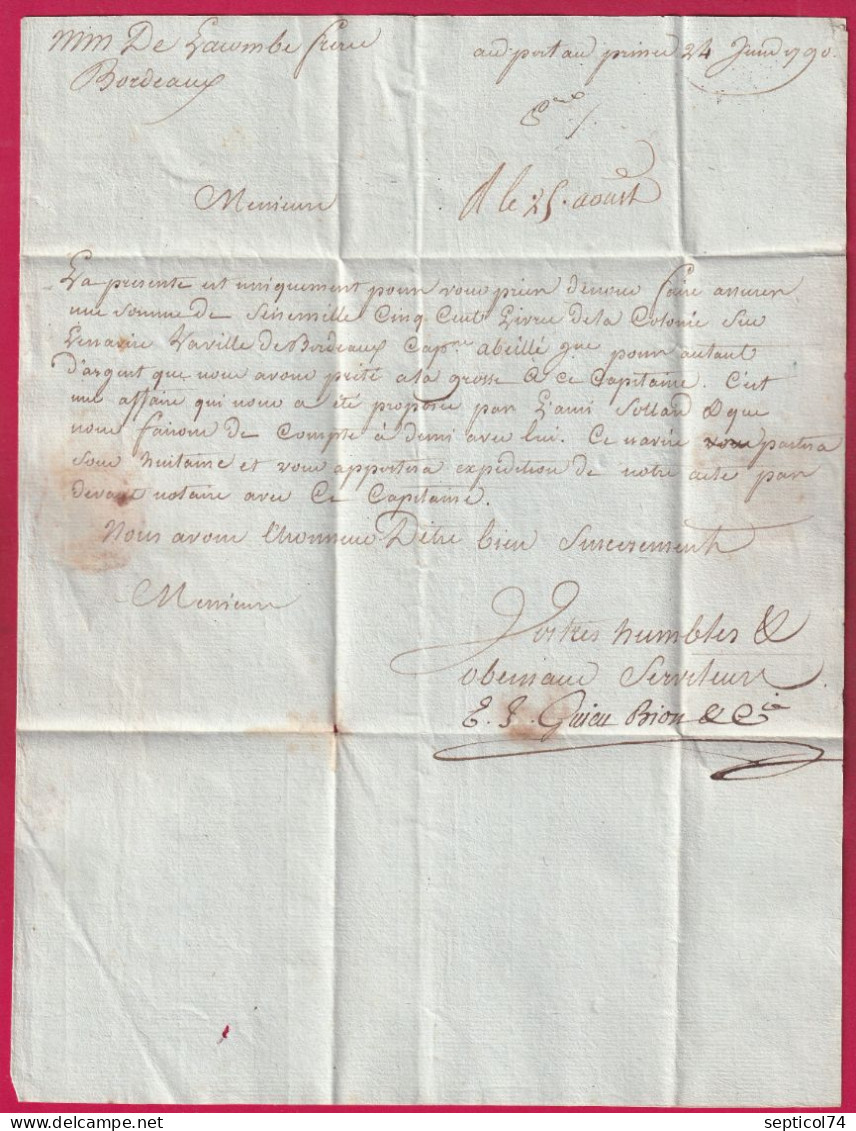 MM De Lacombe frere
Bordeaux
au port au prince 24 Juin 1790.
R le 25. aoust
Messieurs
La presente est uniquement pour vous prier de nous faire assurer
une somme de Seize mille Cinq Cent Livres de la Colonie Sur
Le navire La ville de Bordeaux Capne. abeillé pour autant
d'argent que nous avons prêté a la grosse a ce Capitaine. C'est
une affaire qui nous a été proposée par L'ami Sollard & que
nous faisons de Compte à demi avec lui. Ce navire partira
sous huitaine et vous apportera expédition de notre acte par
devant notaire avec Ce Capitaine.
Nous avons l'honneur D'être bien Sincerement
Messieurs
Vostres humbles &
obeissans Serviteurs
E. J. Guieu Bion & Cie
septicol74